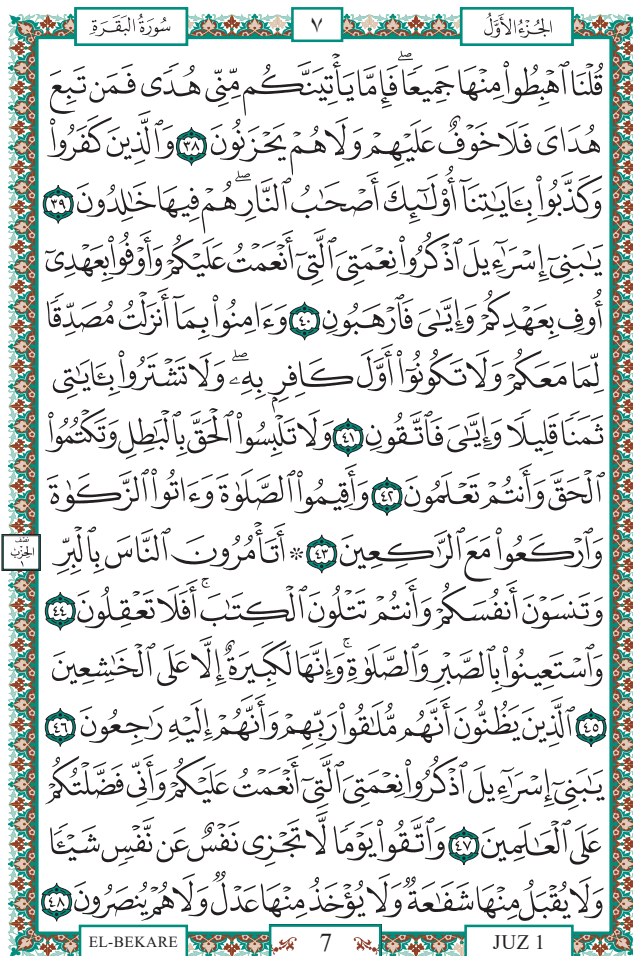 سُورَةُ البَقَرَةِ
٧
الجُزْءُ الأَوَّلُ
قُلْنَا ٱهْبِطُوا۟ مِنْهَا جَمِيعًاۖ فَإِمَّا يَأْتِيَنَّكُم مِّنِّى هُدًى فَمَن تَبِعَ
هُدَاىَ فَلَا خَوْفٌ عَلَيْهِمْ وَلَا هُمْ يَحْزَنُونَ ٣٨ وَٱلَّذِينَ كَفَرُوا۟
وَكَذَّبُوا۟ بِـَٔايَٰتِنَآ أُو۟لَٰٓئِكَ أَصْحَٰبُ ٱلنَّارِۖ هُمْ فِيهَا خَٰلِدُونَ ٣٩
يَٰبَنِىٓ إِسْرَٰٓءِيلَ ٱذْكُرُوا۟ نِعْمَتِىَ ٱلَّتِىٓ أَنْعَمْتُ عَلَيْكُمْ وَأَوْفُوا۟ بِعَهْدِىٓ
أُوفِ بِعَهْدِكُمْ وَإِيَّٰىَ فَٱرْهَبُونِ ٤٠ وَءَامِنُوا۟ بِمَآ أَنزَلْتُ مُصَدِّقًا
لِّمَا مَعَكُمْ وَلَا تَكُونُوٓا۟ أَوَّلَ كَافِرٍۭ بِهِۦۖ وَلَا تَشْتَرُوا۟ بِـَٔايَٰتِى
ثَمَنًا قَلِيلًا وَإِيَّٰىَ فَٱتَّقُونِ ٤١ وَلَا تَلْبِسُوا۟ ٱلْحَقَّ بِٱلْبَٰطِلِ وَتَكْتُمُوا۟
ٱلْحَقَّ وَأَنتُمْ تَعْلَمُونَ ٤٢ وَأَقِيمُوا۟ ٱلصَّلَوٰةَ وَءَاتُوا۟ ٱلزَّكَوٰةَ
وَٱرْكَعُوا۟ مَعَ ٱلرَّٰكِعِينَ ٤٣ ۞ أَتَأْمُرُونَ ٱلنَّاسَ بِٱلْبِرِّ
نصف
الحزب
١
وَتَنسَوْنَ أَنفُسَكُمْ وَأَنتُمْ تَتْلُونَ ٱلْكِتَٰبَۚ أَفَلَا تَعْقِلُونَ ٤٤
وَٱسْتَعِينُوا۟ بِٱلصَّبْرِ وَٱلصَّلَوٰةِۚ وَإِنَّهَا لَكَبِيرَةٌ إِلَّا عَلَى ٱلْخَٰشِعِينَ
٤٥ ٱلَّذِينَ يَظُنُّونَ أَنَّهُم مُّلَٰقُوا۟ رَبِّهِمْ وَأَنَّهُمْ إِلَيْهِ رَٰجِعُونَ ٤٦
يَٰبَنِىٓ إِسْرَٰٓءِيلَ ٱذْكُرُوا۟ نِعْمَتِىَ ٱلَّتِىٓ أَنْعَمْتُ عَلَيْكُمْ وَأَنِّى فَضَّلْتُكُمْ
عَلَى ٱلْعَٰلَمِينَ ٤٧ وَٱتَّقُوا۟ يَوْمًا لَّا تَجْزِى نَفْسٌ عَن نَّفْسٍ شَيْـًٔا
وَلَا يُقْبَلُ مِنْهَا شَفَٰعَةٌ وَلَا يُؤْخَذُ مِنْهَا عَدْلٌ وَلَا هُمْ يُنصَرُونَ ٤٨
EL-BEKARE
7
JUZ 1